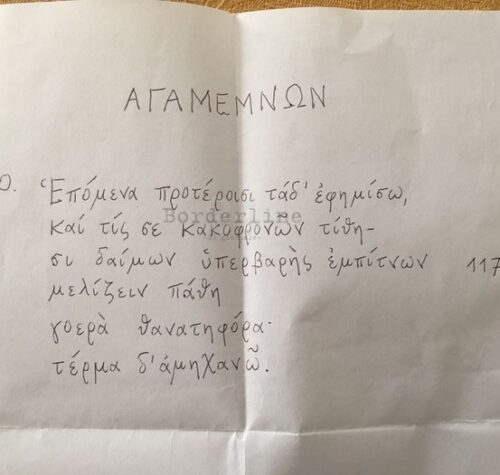 ΑΓΑΜΕΜΝΩΝ
Ο. Ἑπόμενα προτέροισι τάδ' ἐφημίσω,
καί τίς σε κακοφρονῶν τίθη-
Borderline
σι δαίμων ὑπερβαρὴς ἐμπίτνων 117
μελίζειν πάθη
γοερὰ θανατηφόρα·
τέρμα δ' ἀμηχανῶ.